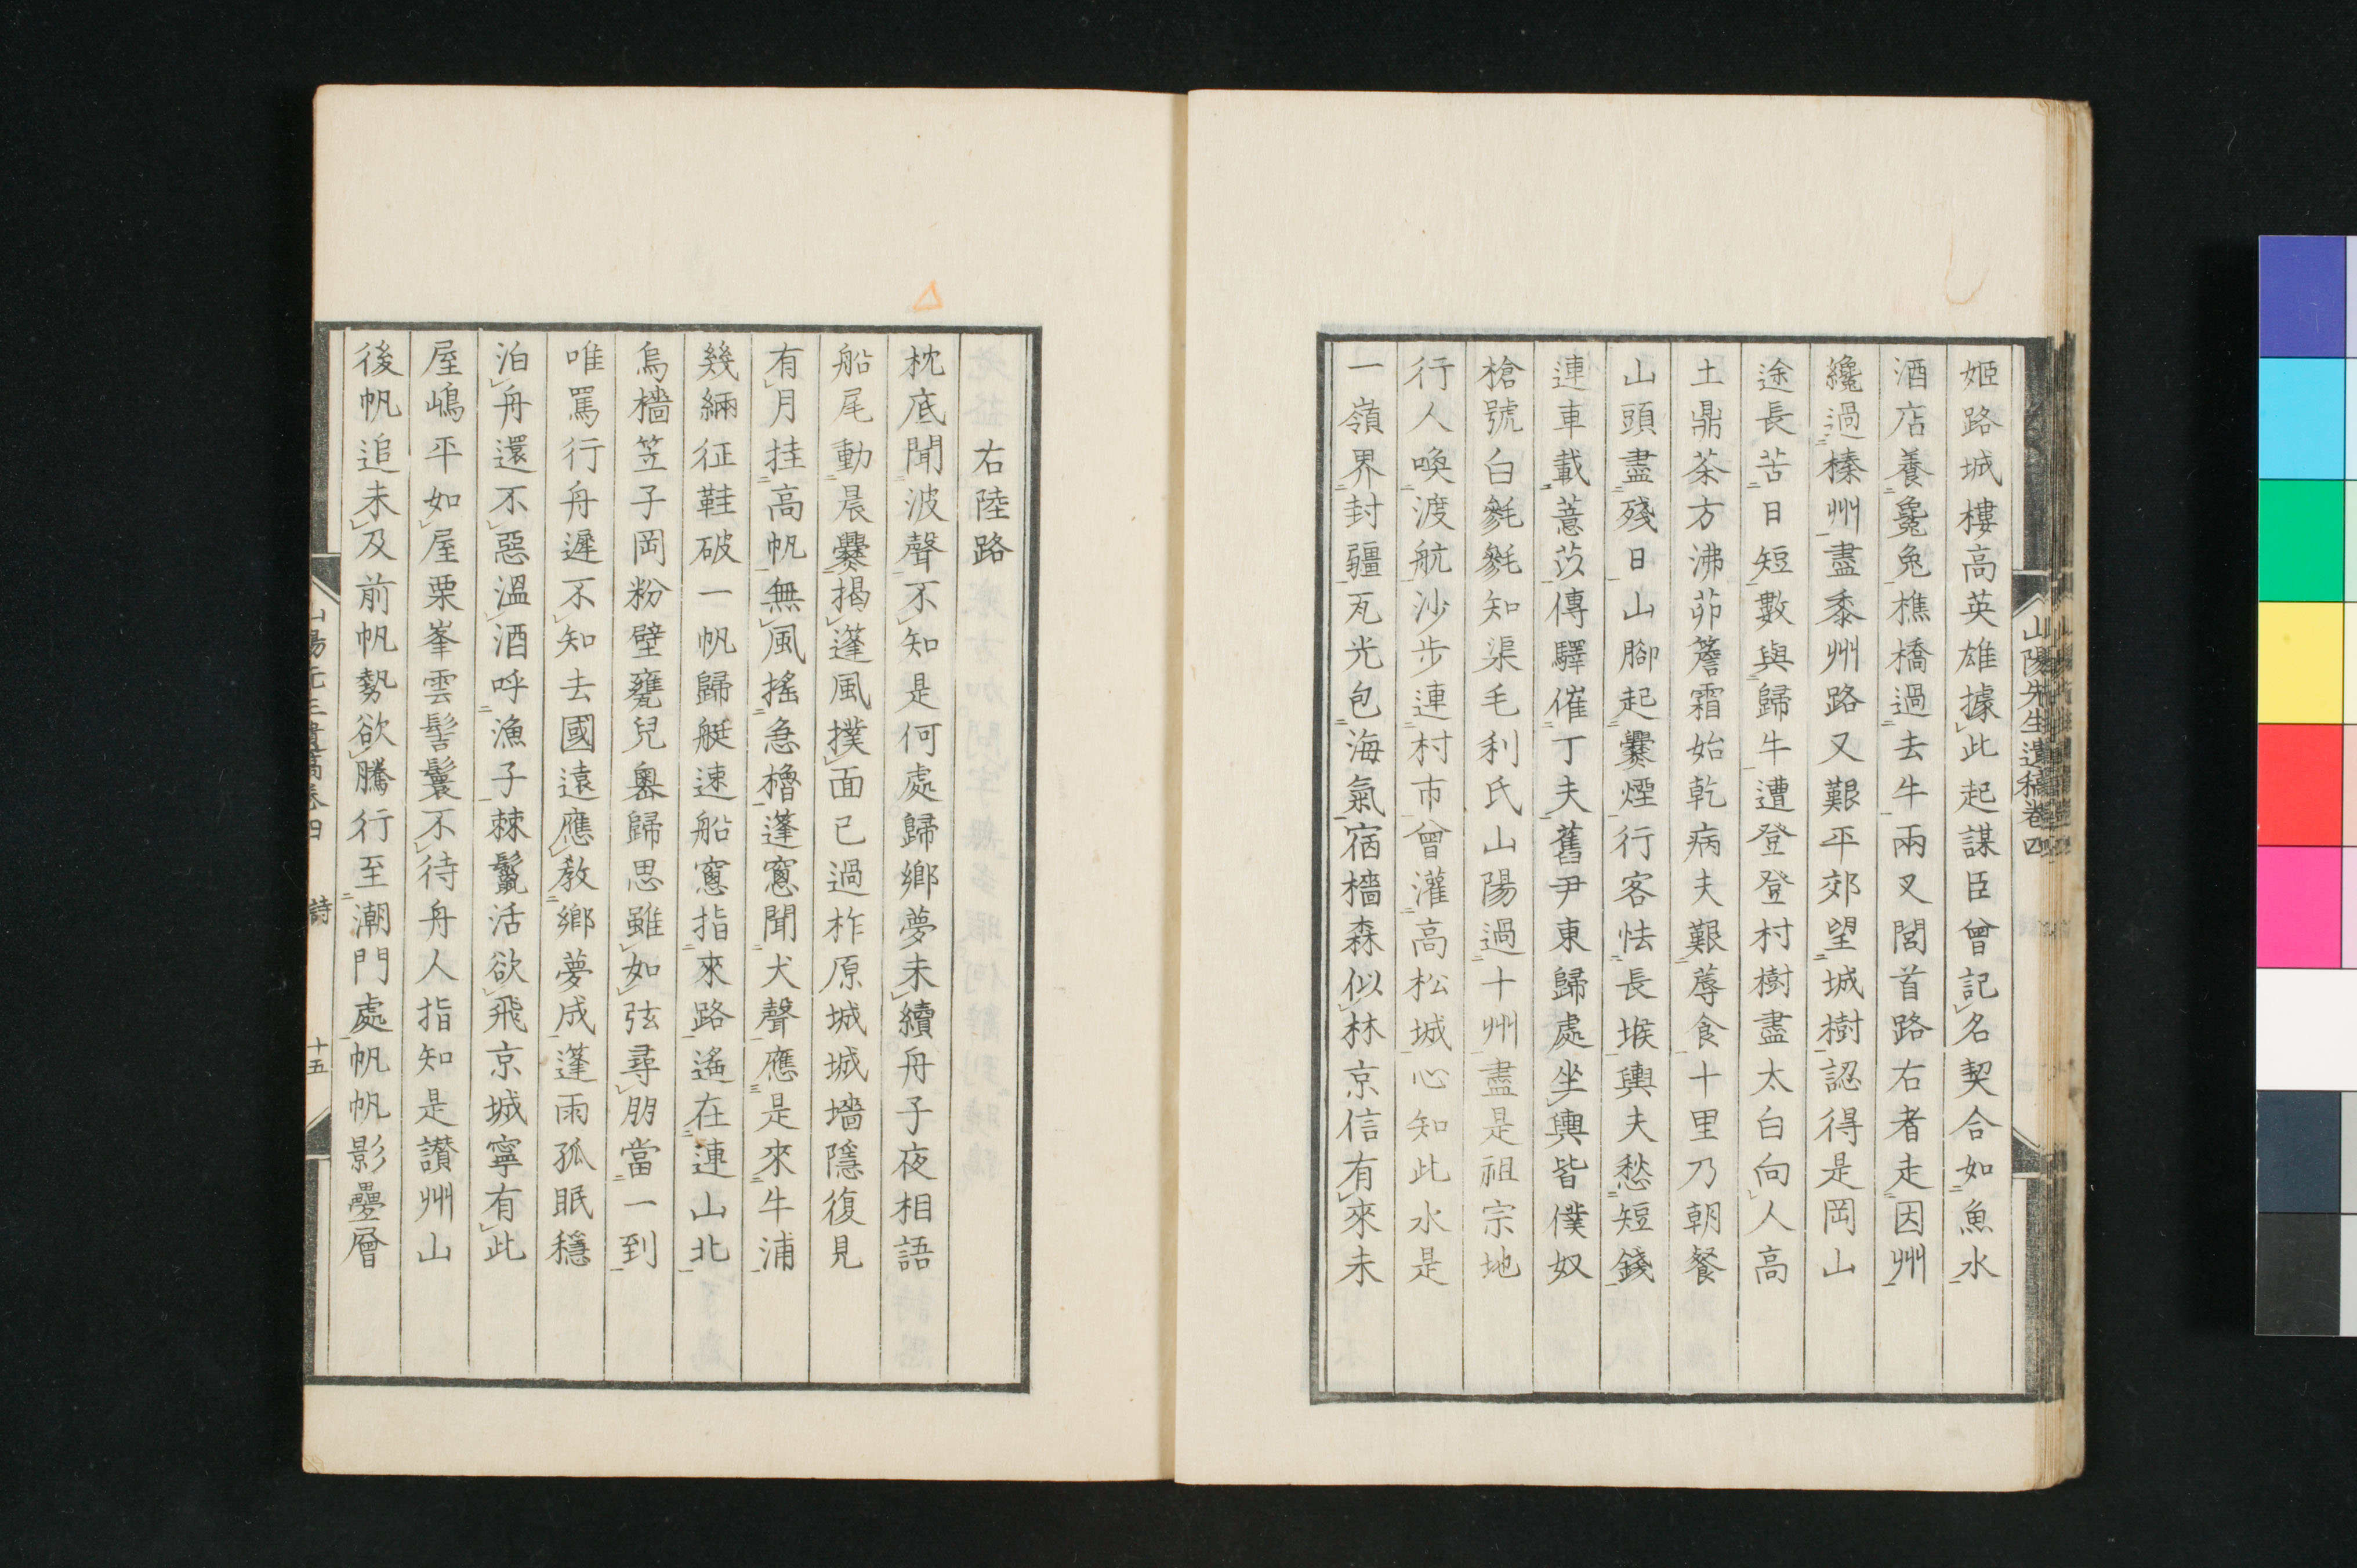 姬路城樓高英雄據此起謀臣曾記名契合如魚水
酒店養毚兔樵橋過去牛兩叉閭首路右者走因州
纔過榛州盡黍州路又艱平郊望城樹認得是岡山
途長苦日短數與歸牛遭登登村樹盡太白向人高
土鼎茶方沸茆簷霜始乾病夫艱蓐食十里乃朝餐
山頭盡殘日山腳起爨煙行客怯長堠輿夫愁短錢
連車載薏苡傳驛催丁夫舊尹東歸處坐輿皆僕奴
槍號白毿毿知渠毛利氏山陽過十州盡是祖宗地
行人喚渡航沙步連村市曾灌高松城心知此水是
一嶺界封疆瓦光包海氣宿檣森似林京信有來未
山陽先生遺稿卷四
右陸路
枕底聞波聲不知是何處歸鄉夢未續舟子夜相語
船尾動晨爨揭篷風撲面已過柞原城城墻隱復見
有月挂高帆無風搖急櫓蓬窻聞犬聲應是來牛浦
幾緉征鞋破一帆歸艇速船窻指來路遙在連山北
烏檣笠子岡粉壁甕兒奧歸思雖如弦尋朋當一到
唯罵行舟遲不知去國遠應教鄉夢成蓬雨孤眠穩
泊舟還不惡溫酒呼漁子棘鬣活欲飛京城寧有此
屋嶋平如屋栗峯雲髻鬟不待舟人指知是讃州山
後帆追未及前帆勢欲騰行至潮門處帆帆影疊層
山陽先生遺稿卷四 詩 十五